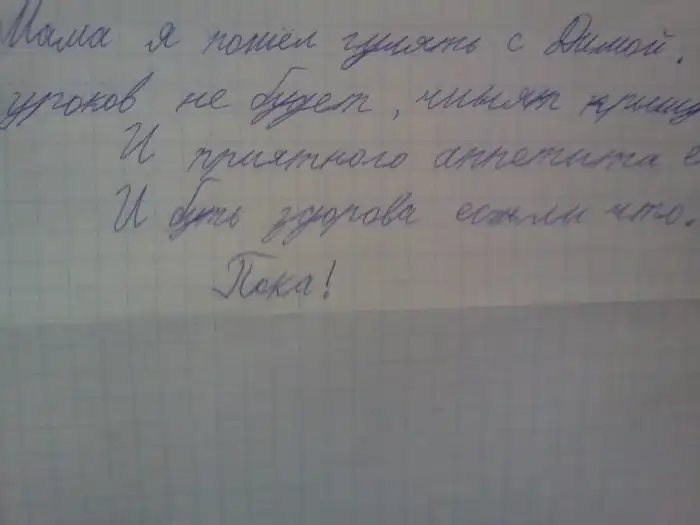 Мама я пошёл гулять с Димой.
уроков не будет, чинят крышу
И приятного аппетита е
И будь здорова если что.
Пока!